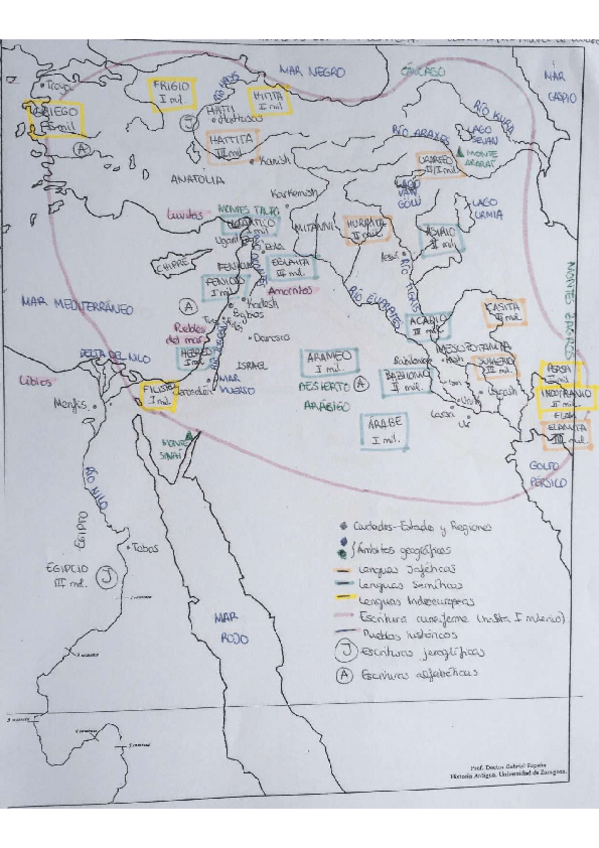 MAR NEGRO
CÁUCASO
MAR
CASPIO
Troya
FRIGIO
I mil.
HATTI
Hattusas
HITITA
I mil.
RÍO KURA
GRIEGO
J
RÍO ARAXES
LAGO
SEVAN
HATTITA
III mil.
Kanish
MONTE
ARARAT
A
ANATOLIA
LAGO
VAN
LAGO
URMIA
Karkemish
Luvitas
MITANNI
HURRITA
II mil.
ASIRIO
II mil.
Ugarit
Ebla
CHIPRE
EBLAITA
III mil.
FENICIO
I mil.
Amorritas
RÍO TIGRIS
RÍO ÉUFRATES
MAR MEDITERRÁNEO
A
Kadesh
Biblos
KASITA
II mil.
MONTES ZAGROS
Pueblos
del mar
Damasco
ACADIO
III mil.
MESOPOTAMIA
DELTA DEL NILO
HEBREO
I mil.
ISRAEL
ARAMEO
I mil.
Babilonia
Kish
SUMERIO
III mil.
PERSA
I mil.
Libios
FILISTEO
I mil.
Jerusalén
MAR
MUERTO
DESIERTO
ARÁBIGO
A
BABILONIO
II mil.
INDOIRANIO
II mil.
Menfis
Uruk
Ur
ELAM
ÁRABE
I mil.
ELAMITA
III mil.
MONTE
SINAÍ
GOLFO
PÉRSICO
RÍO NILO
EGIPTO
Ciudades-Estado y Regiones
Ámbitos geográficos
Tebas
Lenguas Jaféticas
EGIPCIO
III mil.
J
Lenguas Semíticas
Lenguas Indoeuropeas
MAR
ROJO
Escritura cuneiforme (hasta I milenio)
Pueblos históricos
J Escrituras jeroglíficas
A Escrituras alfabéticas
Historia Antigua. Universidad de Zaragoza.